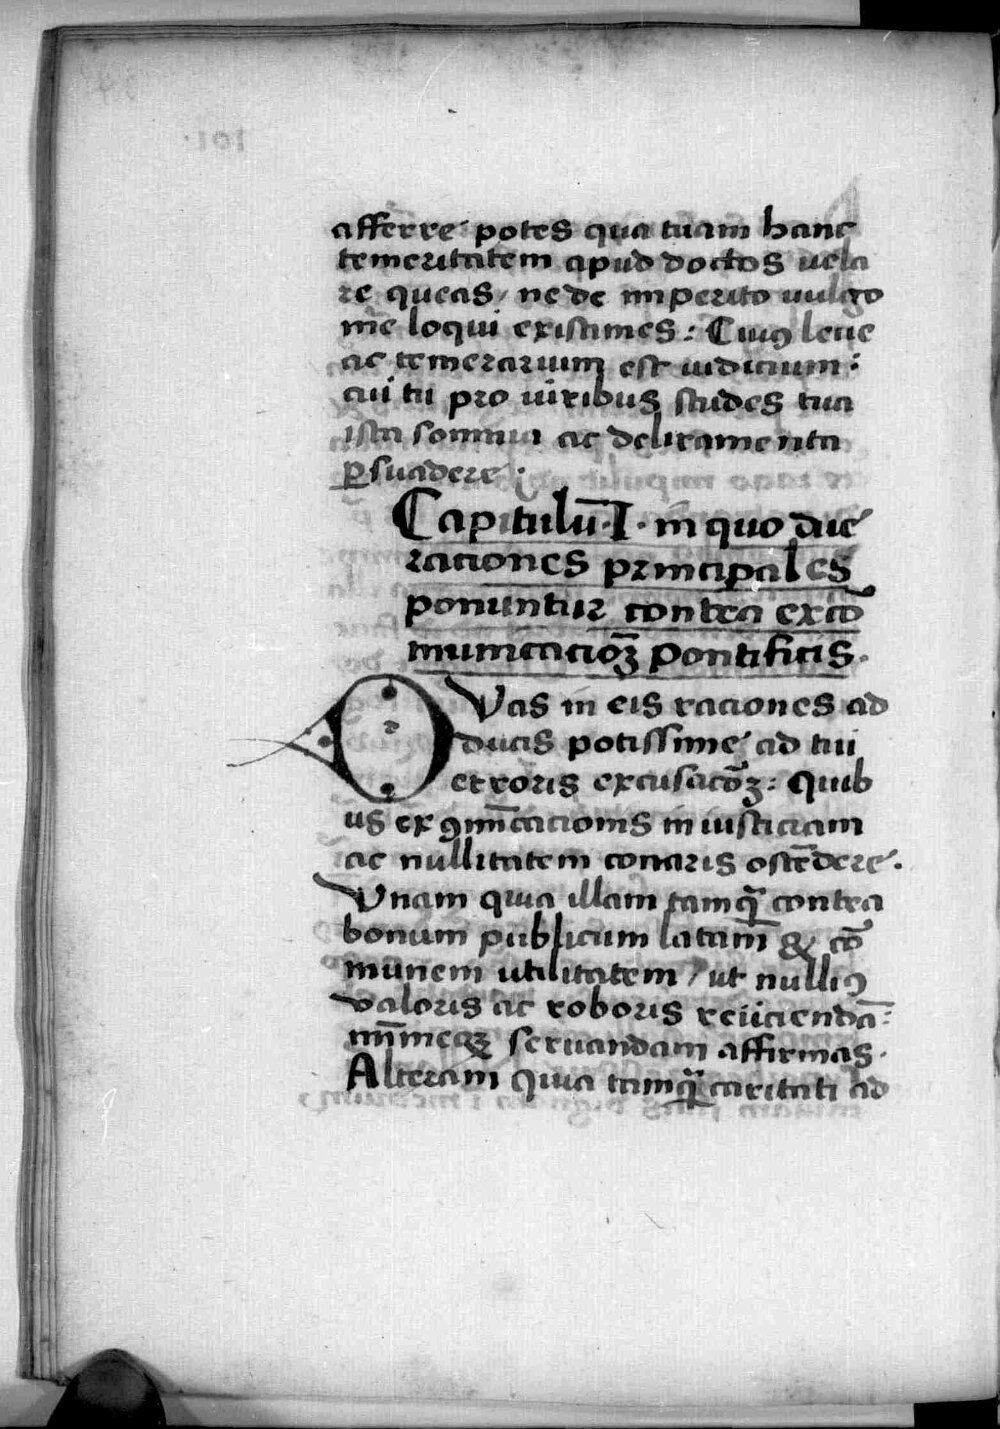 afferre potes qua tuam hanc
temeritatem apud doctos uela
re queas / ne de imperito uulgo
me loqui existimes : Cuiꝰ leue
ac temerarium est iudicium :
cui tu pro uiribus studes tua
ista somnia ac deliramenta
ꝑsuadere :
Capitulū · I · in quo due
rationes principales
ponuntur contra exco͞
municatioꝫ pontificis ·
DVas in eis rationes ad
ducis potissime ad tui
erroris excusaco͞ꝫ : Quib
us exꝯmu͞icationis iniusticiam
ac nullitatem conaris oste͞dere .
Vnam quia illam tamq̃ contra
bonum publicum latam & co͞
munem utilitatem / ut nulliꝰ
valoris ac roboris reiiciendā :
mi͞nimeqꝫ seruandam affirmas .
Alteram quia tamq̃ caritati ad